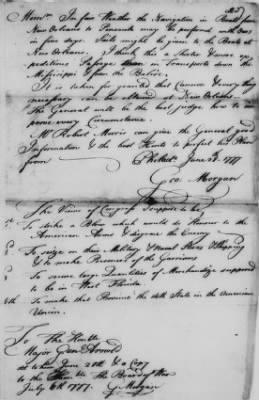 Memo. In fair Weather the Navigation in Boats from
New Orleans to Pensacola may be performed with Oars
in five days. Sails might be given to the Boats at
New Orleans. I think this a shorter & more ex-
peditious Passage than in Transports down the
Mississippi & from the Belize.
It is taken for granted that Cannon & every thing
necessary can be obtained at New Orleans.
The General will be the best judge how to im-
prove every Circumstance.
Mr. Robert Morris can give the General good
Information & the best Hints to perfect his Plan
from
Philada. June 28. 1777
Geo. Morgan
The Views of Congress I suppose to be
To strike a Blow which would do Honour to the
American Arms & disgrace the Enemy
To seize on their Military & Naval Stores & Shipping
& to make Prisoners of the Garrisons
To secure large Quantities of Merchandize supposed
to be in West Florida
To make that Province the 14th State in the American
Union.
To The Honble
Major Genl. Arnold
as taken June 28th & a Copy
to the The Board of War
July 6th 1777. G. Morgan